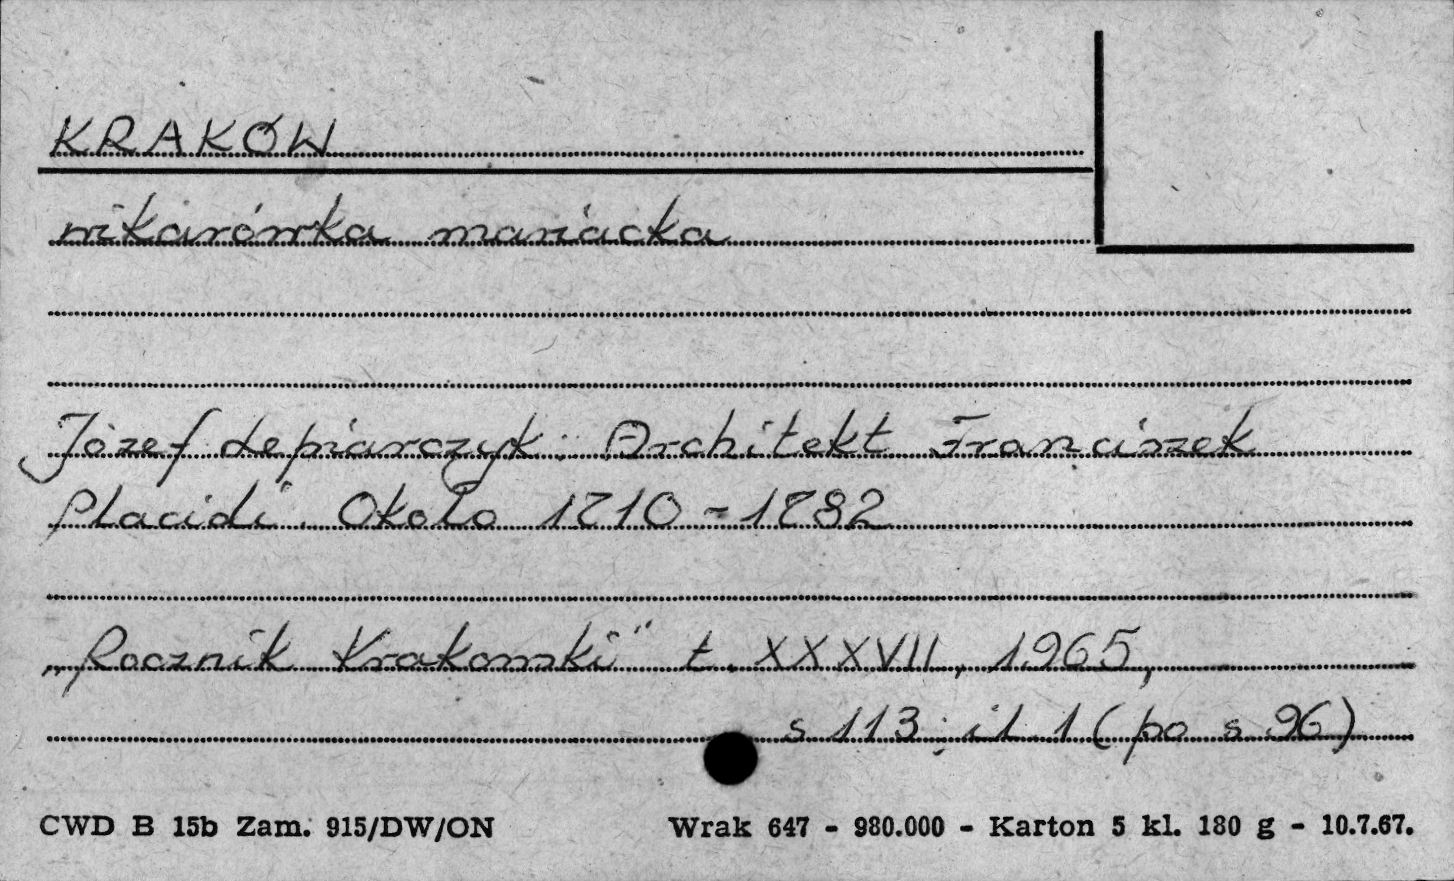 KRAKÓW
wikarówka mariacka
Józef Lepiarczyk: Architekt Franciszek
Placidi. Około 1710-1782
„Rocznik Krakowski" t. XXXVII, 1965,
s 113; il 1 (po s 96)
CWD B 15b Zam. 915/DW/ON
Wrak 647 - 980.000 - Karton 5 kl. 180 g - 10.7.67.